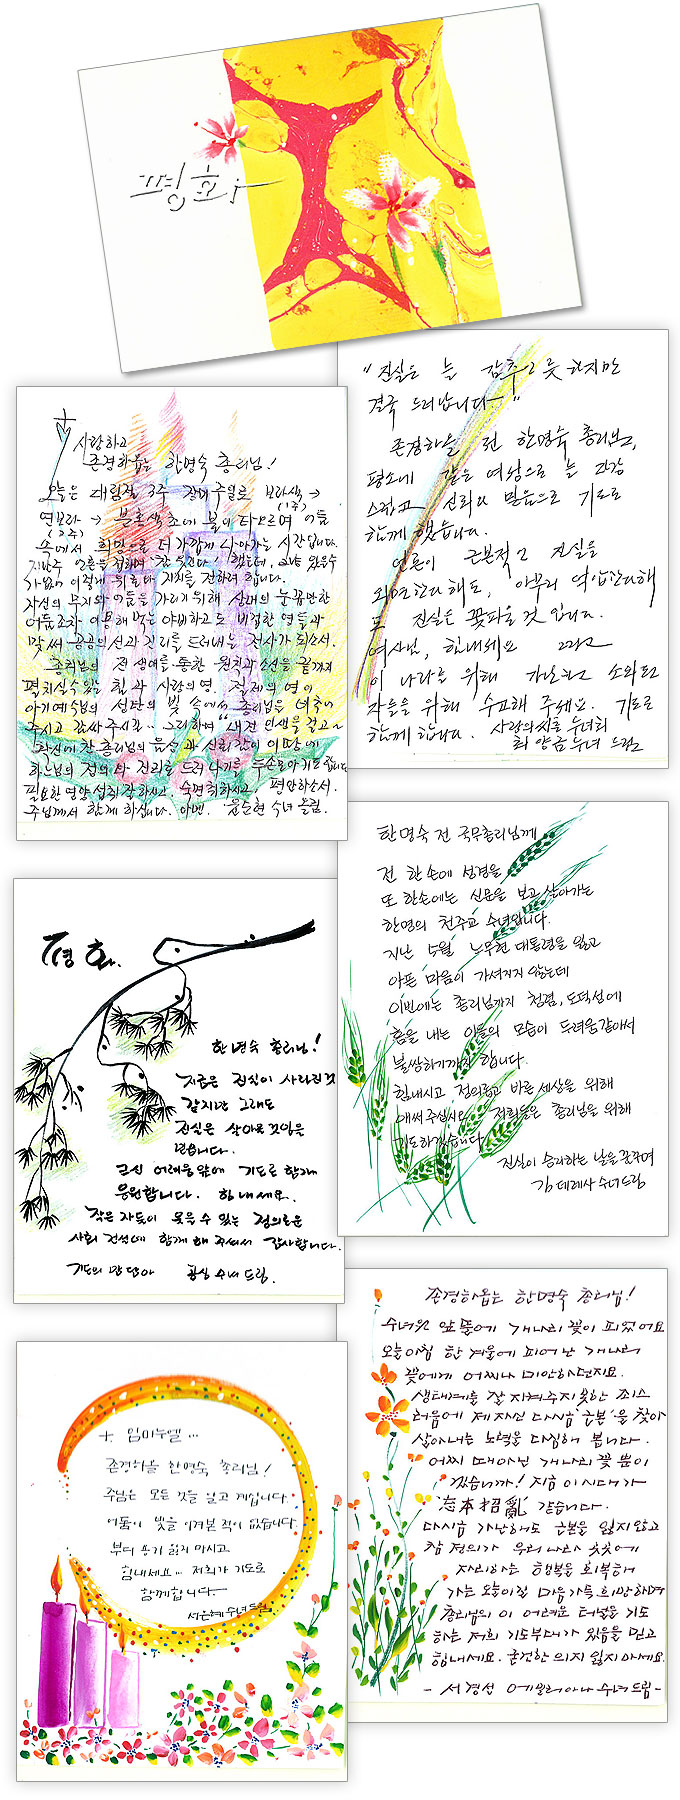 평화
"진실은 늘 감추고 있는 듯 하지만
결국 드러납니다"
존경하올 전 한명숙 총리님,
평소에 같은 여왕으로 늘 건강
스럽고 신뢰와 믿음으로 기도로
함께 했습니다.
언론이 근본적인 진실을
외면한다 해도, 아무리 억압한다해
도 진실은 꽃피울 것입니다.
여사님, 힘내세요 그리고
이 나라를 위해 가난하고 소외된
자들을 위해 수고해 주세요. 기도로
함께 합니다. 사랑의씨튼 수녀회
수녀 드림
사랑하고
존경하옵는 한명숙 총리님!
오늘은 대림절 3주 장미주일로 보라색 →
(1주)
연보라 → 분홍색 초에 불이 타오르며 어둠
(2주)
속에서 희망으로 더 가깝게 나아가는 시간입니다.
가없어 이렇게 위로와 지지를 전하려 합니다.
자신의 무지와 어둠을 가리기 위해 상대의 눈꼽만한
어둠조차 이용해 먹는 야비하고도 비정한 영들과
맞써 공공의 선과 진리를 드러내는 전사가 되소서.
총리님의 전 생애를 통한 원칙과 소신을 끝까지
펼치실 수 있는 힘과 사랑의 영, 절제의 영이
아기예수님의 성탄의 빛 속에서 총리님을 비추어
주시고 감싸주시길… 그리하여 "내 전 인생을 걸고~
하느님의 정의와 진리를 드러내기를 두손모아 기도합니다
필요한 영양 섭취 잘하시고, 숙면취하시고, 평안하소서.
주님께서 함께 하십니다. 아멘. 윤순현 수녀 올림.
한명숙 전 국무총리님께
전 한손에 성경을
또 한손에는 신문을 보고 살아가는
한명의 천주교 수녀입니다.
지난 5월 노무현 대통령을 잃고
아픈 마음이 가셔지지 않는데
이번에는 총리님까지 청렴, 도덕성에
흠을 내는 이들의 모습이 두려움 같아서
불쌍하기까지 합니다.
힘내시고 정의롭고 바른 세상을 위해
애써 주십시오. 저희들은 총리님을 위해
기도하겠습니다.
진실이 승리하는 날을 꿈꾸며
김 데레사 수녀드림
평화.
한명숙 총리님!
지금은 진실이 사라진 것
같지만 그래도
진실은 살아올 것임을
믿습니다.
당신 어려움 앞에 기도로 함께
응원합니다. 힘내세요.
작은 자들이 웃을 수 있는 정의로운
사회 건설에 함께 해 주셔서 감사합니다.
기도의 맘 담아 수녀 드림.
존경하옵는 한명숙 총리님!
수녀원 앞뜰에 개나리 꽃이 피었어요
오늘아침 한 겨울에 피어난 개나리
꽃에게 어찌나 미안하던지요.
생태계를 잘 지켜주지 못한 죄스
러움에 제 자신 다시금 '근본'을 찾아
살아내는 노력을 다짐해 봅니다.
어찌 때아닌 개나리 꽃 뿐이
겠습니까! 지금 이 시대가
'忘本招亂' 같습니다.
다시금 가난해도 근본을 잃지 않고
참 정의가 우리나라 곳곳에
자리하는 행복을 회복해
가는 오늘이길 마음 가득 희망하며
총리님의 이 어려운 터널을 기도
하는 저희 기도부대가 있음을 믿고
힘내세요. 굳건한 의지 잃지 마세요.
- 서경선 에밀리아나 수녀 드림 -
+ 임마누엘…
존경하올 한명숙 총리님!
주님은 모든 것을 알고 계십니다.
어둠이 빛을 이겨본 적이 없습니다.
부디 용기 잃지 마시고
힘내세요… 저희가 기도로
함께합니다.
서은혜 수녀드림